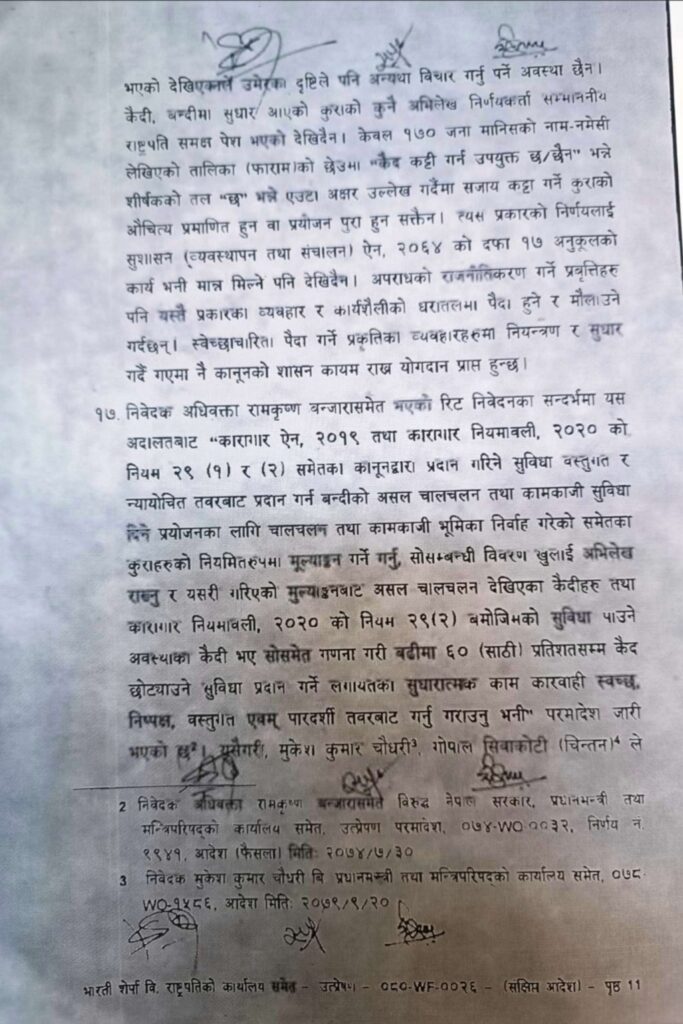 भएको देखिएकाले उमेरका दृष्टिले पनि अन्यथा विचार गर्नु पर्ने अवस्था छैन।
कैदी, बन्दीमा सुधार आएको कुराको कुनै अभिलेख निर्णयकर्ता सम्माननीय
राष्ट्रपति समक्ष पेश भएको देखिदैन। केवल १७० जना मानिसको नाम-नमेसी
लेखिएको तालिका (फाराम)को छेउमा "कैद कट्टी गर्न उपयुक्त छ/छैन" भन्ने
शीर्षकको तल "छ" भन्ने एउटा अक्षर उल्लेख गर्दैमा सजाय कट्टा गर्ने कुराको
औचित्य प्रमाणित हुन वा प्रयोजन पुरा हुन सक्तैन। त्यस प्रकारको निर्णयलाई
सुशासन (व्यवस्थापन तथा संचालन) ऐन, २०६४ को दफा १७ अनुकूलको
कार्य भनी मान्न मिल्ने पनि देखिदैन। अपराधको राजनीतिकरण गर्ने प्रवृत्तिहरु
पनि यस्तै प्रकारका व्यवहार र कार्यशैलीको धरातलमा पैदा हुने र मौलाउने
गर्दछन्। स्वेच्छाचारिता पैदा गर्ने प्रकृतिका व्यवहारहरुमा नियन्त्रण र सुधार
गर्दै गएमा नै कानूनको शासन कायम राख्न योगदान प्राप्त हुन्छ।
१७. निवेदक अधिवक्ता रामकृष्ण बन्जारासमेत भएको रिट निवेदनका सन्दर्भमा यस
अदालतबाट "कारागार ऐन, २०१९ तथा कारागार नियमावली, २०२० को
नियम २९ (१) र (२) समेतका कानूनद्वारा प्रदान गरिने सुविधा वस्तुगत र
न्यायोचित तवरबाट प्रदान गर्न बन्दीको असल चालचलन तथा कामकाजी सुविधा
दिने प्रयोजनका लागि चालचलन तथा कामकाजी भूमिका निर्वाह गरेको समेतका
कुराहरुको नियमितरुपमा मूल्याङ्कन गर्ने गर्नु, सोसम्बन्धी विवरण खुलाई अभिलेख
राख्नु र यसरी गरिएको मुल्याङ्कनबाट असल चालचलन देखिएका कैदीहरु तथा
कारागार नियमावली, २०२० को नियम २९(२) बमोजिमको सुविधा पाउने
अवस्थाका कैदी भए सोसमेत गणना गरी बढीमा ६० (साठी) प्रतिशतसम्म कैद
छोट्याउने सुविधा प्रदान गर्ने लगायतका सुधारात्मक काम कारवाही स्वच्छ,
निष्पक्ष, वस्तुगत एवम् पारदर्शी तवरबाट गर्नु गराउनु भनी" परमादेश जारी
भएको छ²। यसैगरी, मुकेश कुमार चौधरी³, गोपाल सिवाकोटी (चिन्तन)⁴ ले
2 निवेदक अधिवक्ता रामकृष्ण बन्जारासमेत विरुद्ध नेपाल सरकार, प्रधानमन्त्री तथा
मन्त्रिपरिषद्को कार्यालय समेत, उत्प्रेषण परमादेश, ०७४-WO-००३२, निर्णय नं.
१९४१, आदेश (फैसला) मितिः २०७४/७/३०
3 निवेदक मुकेश कुमार चौधरी बि प्रधानमन्त्री तथा मन्त्रिपरिषद्को कार्यालय समेत, ०७८-
WO-१५८६, आदेश मितिः २०७९/९/२०
भारती शेर्पा वि. राष्ट्रपतिको कार्यालय समेत - उत्प्रेषण - ०८०-WF-००२६ - (संक्षिप्त आदेश) - पृष्ठ 11